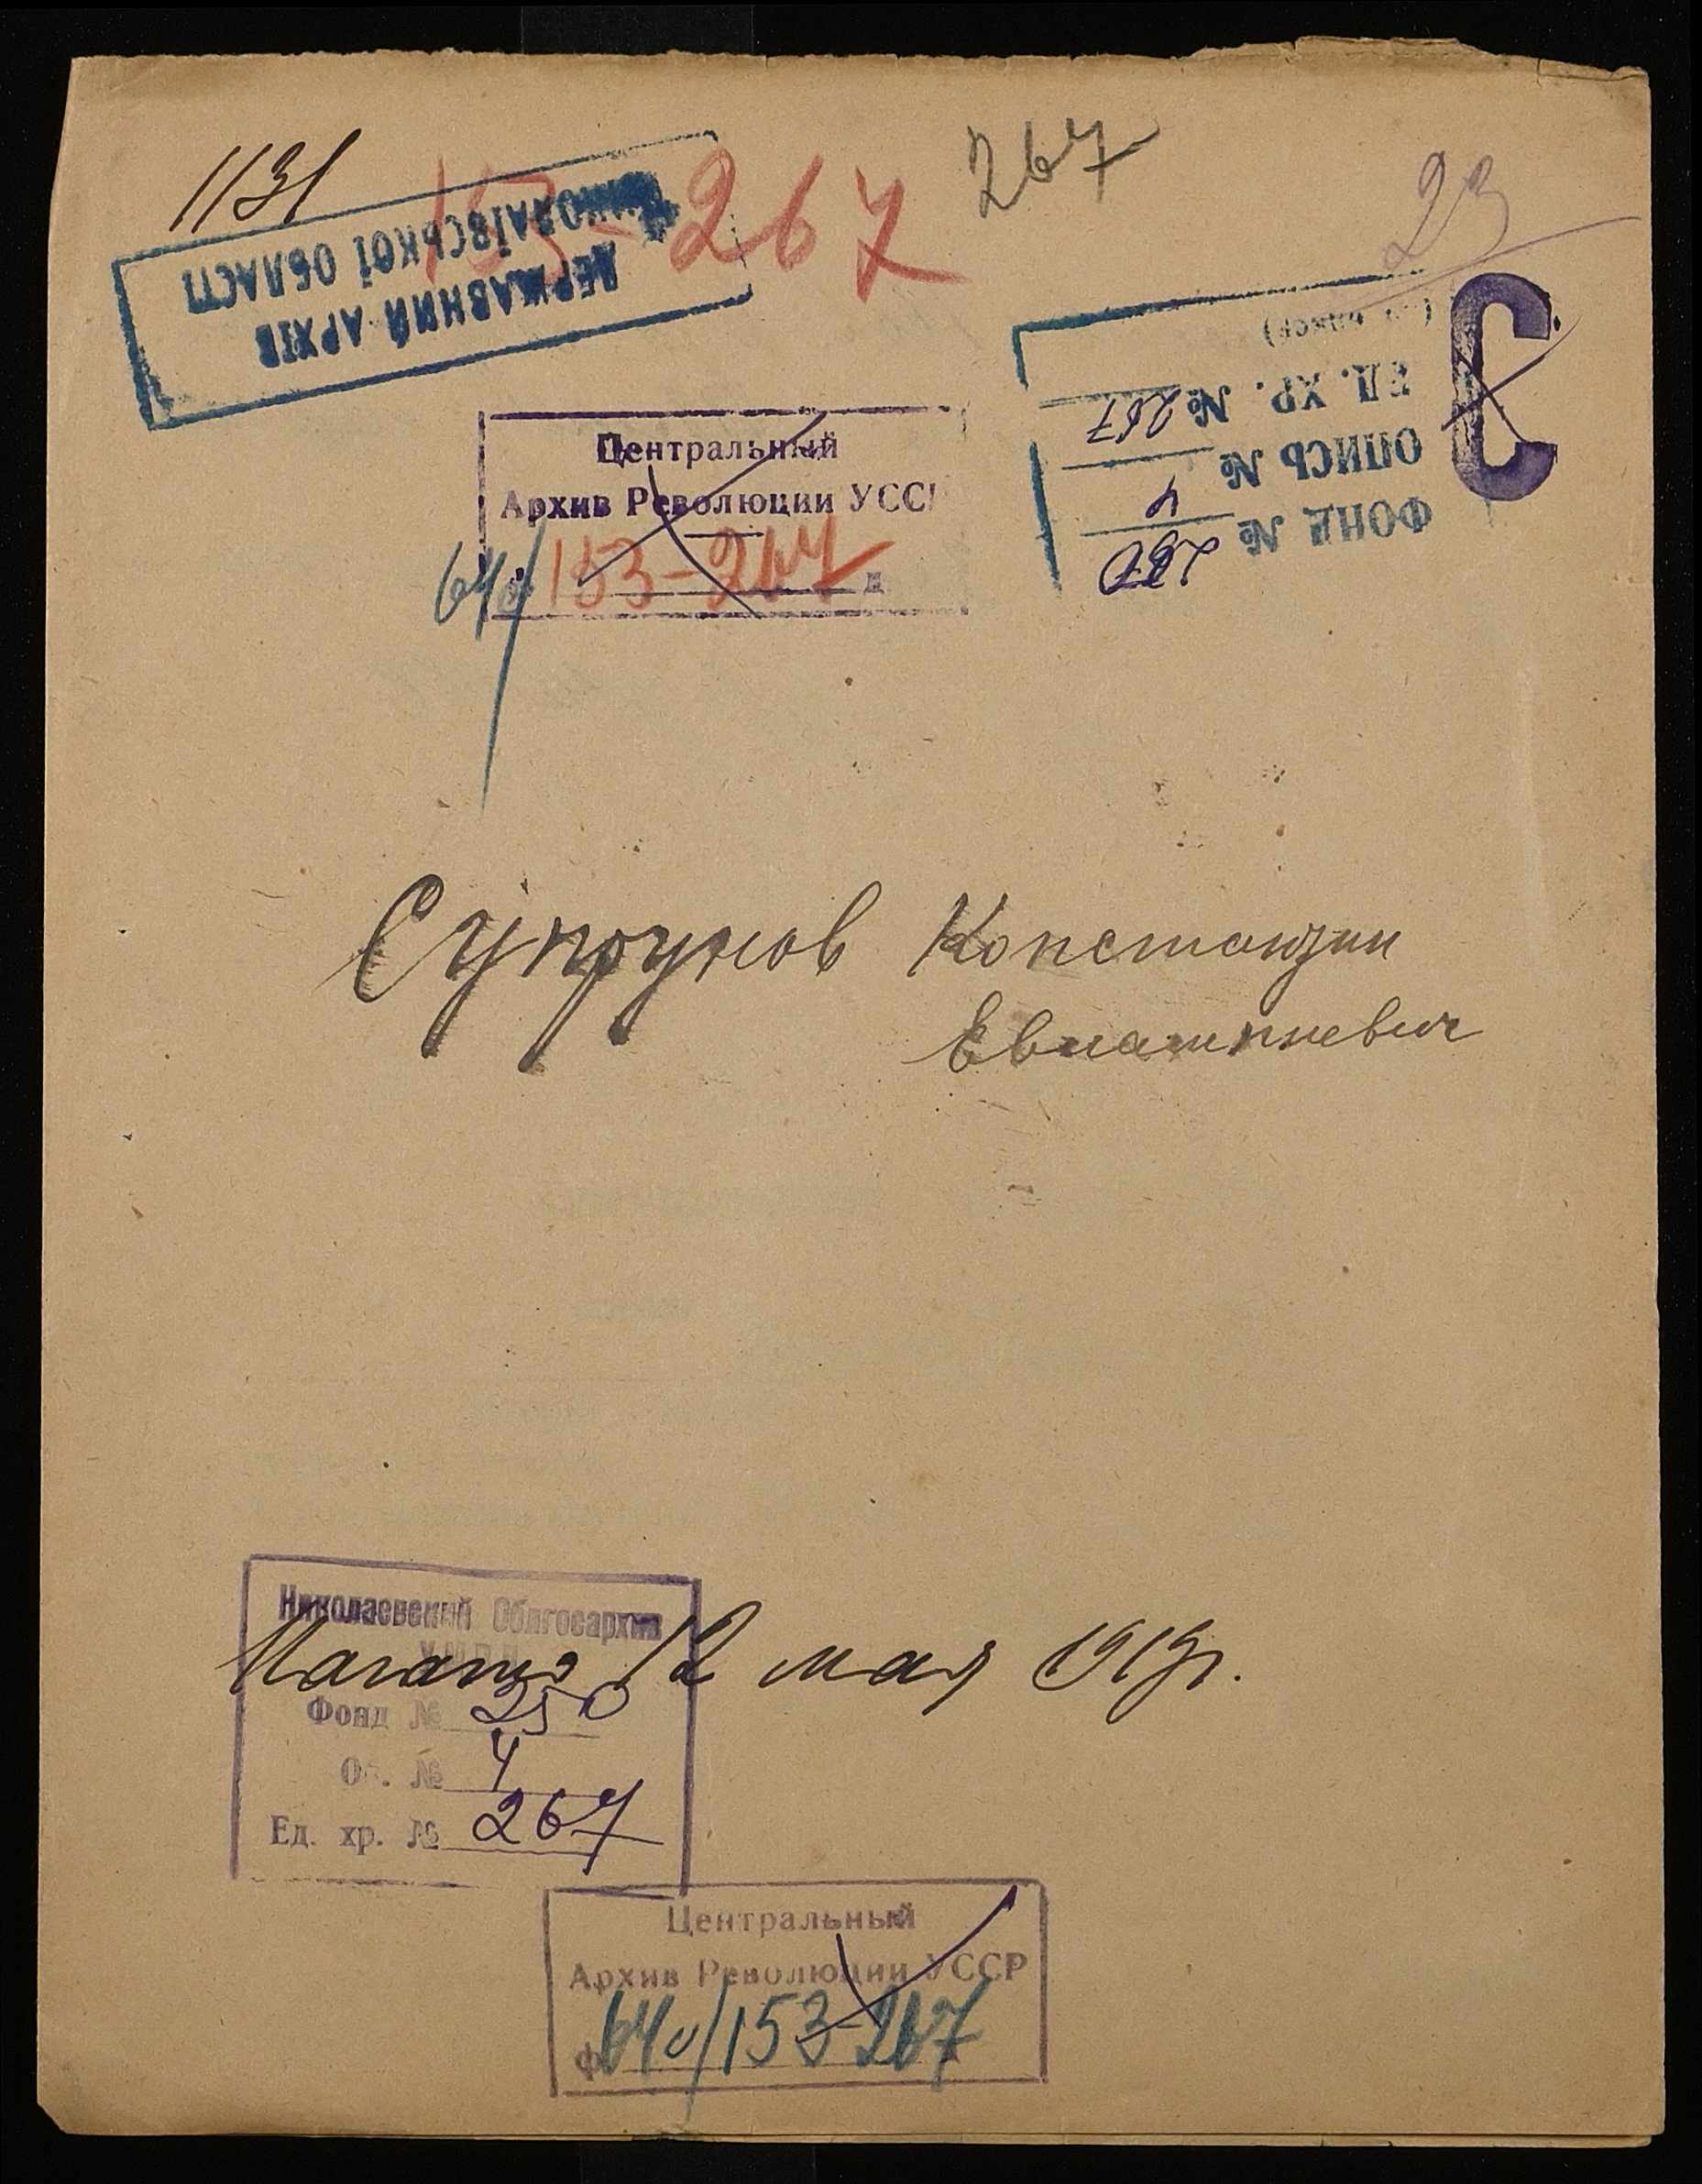 1131
153-267
267
23
ДЕРЖАВНИЙ АРХІВ
МИКОЛАЇВСЬКОЇ ОБЛАСТІ
С
ФОНД № 250
ОПИСЬ № 4
ЕД. ХР. № 267
Центральный
Архив Революции УССР
640/153-267
Супрунов Константин
Начато 12 мая 1919 г.
Николаевский Облгосархив
Фонд № 250
Оп. № 4
Ед. хр. № 267
Центральный
Архив Революции УССР
ф 640/153-267